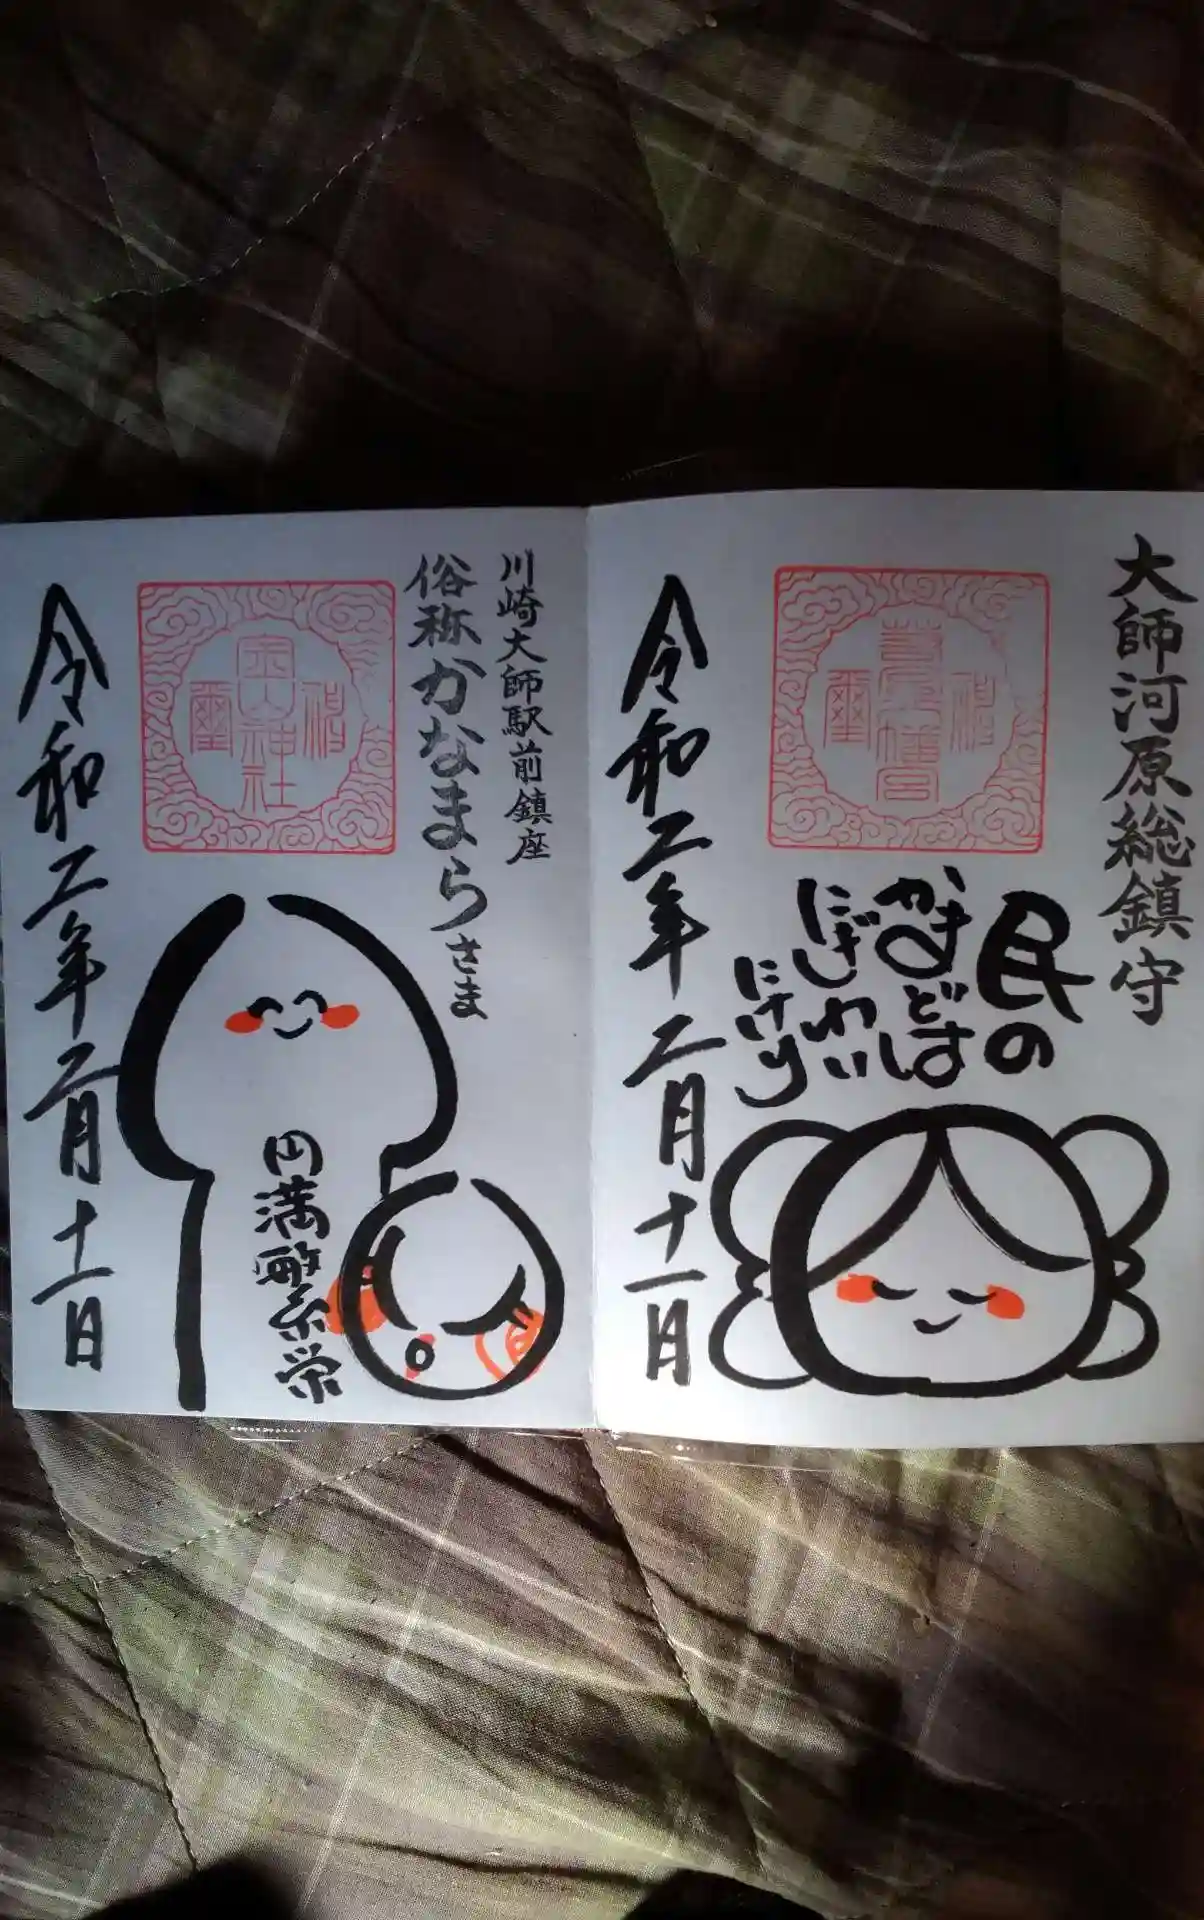 大師河原総鎮守
民の
かまどは
にぎわい
にけり
令和二年二月十一日
川崎大師駅前鎮座
俗称かなまらさま
金山神社
円満繁栄
令和二年二月十一日